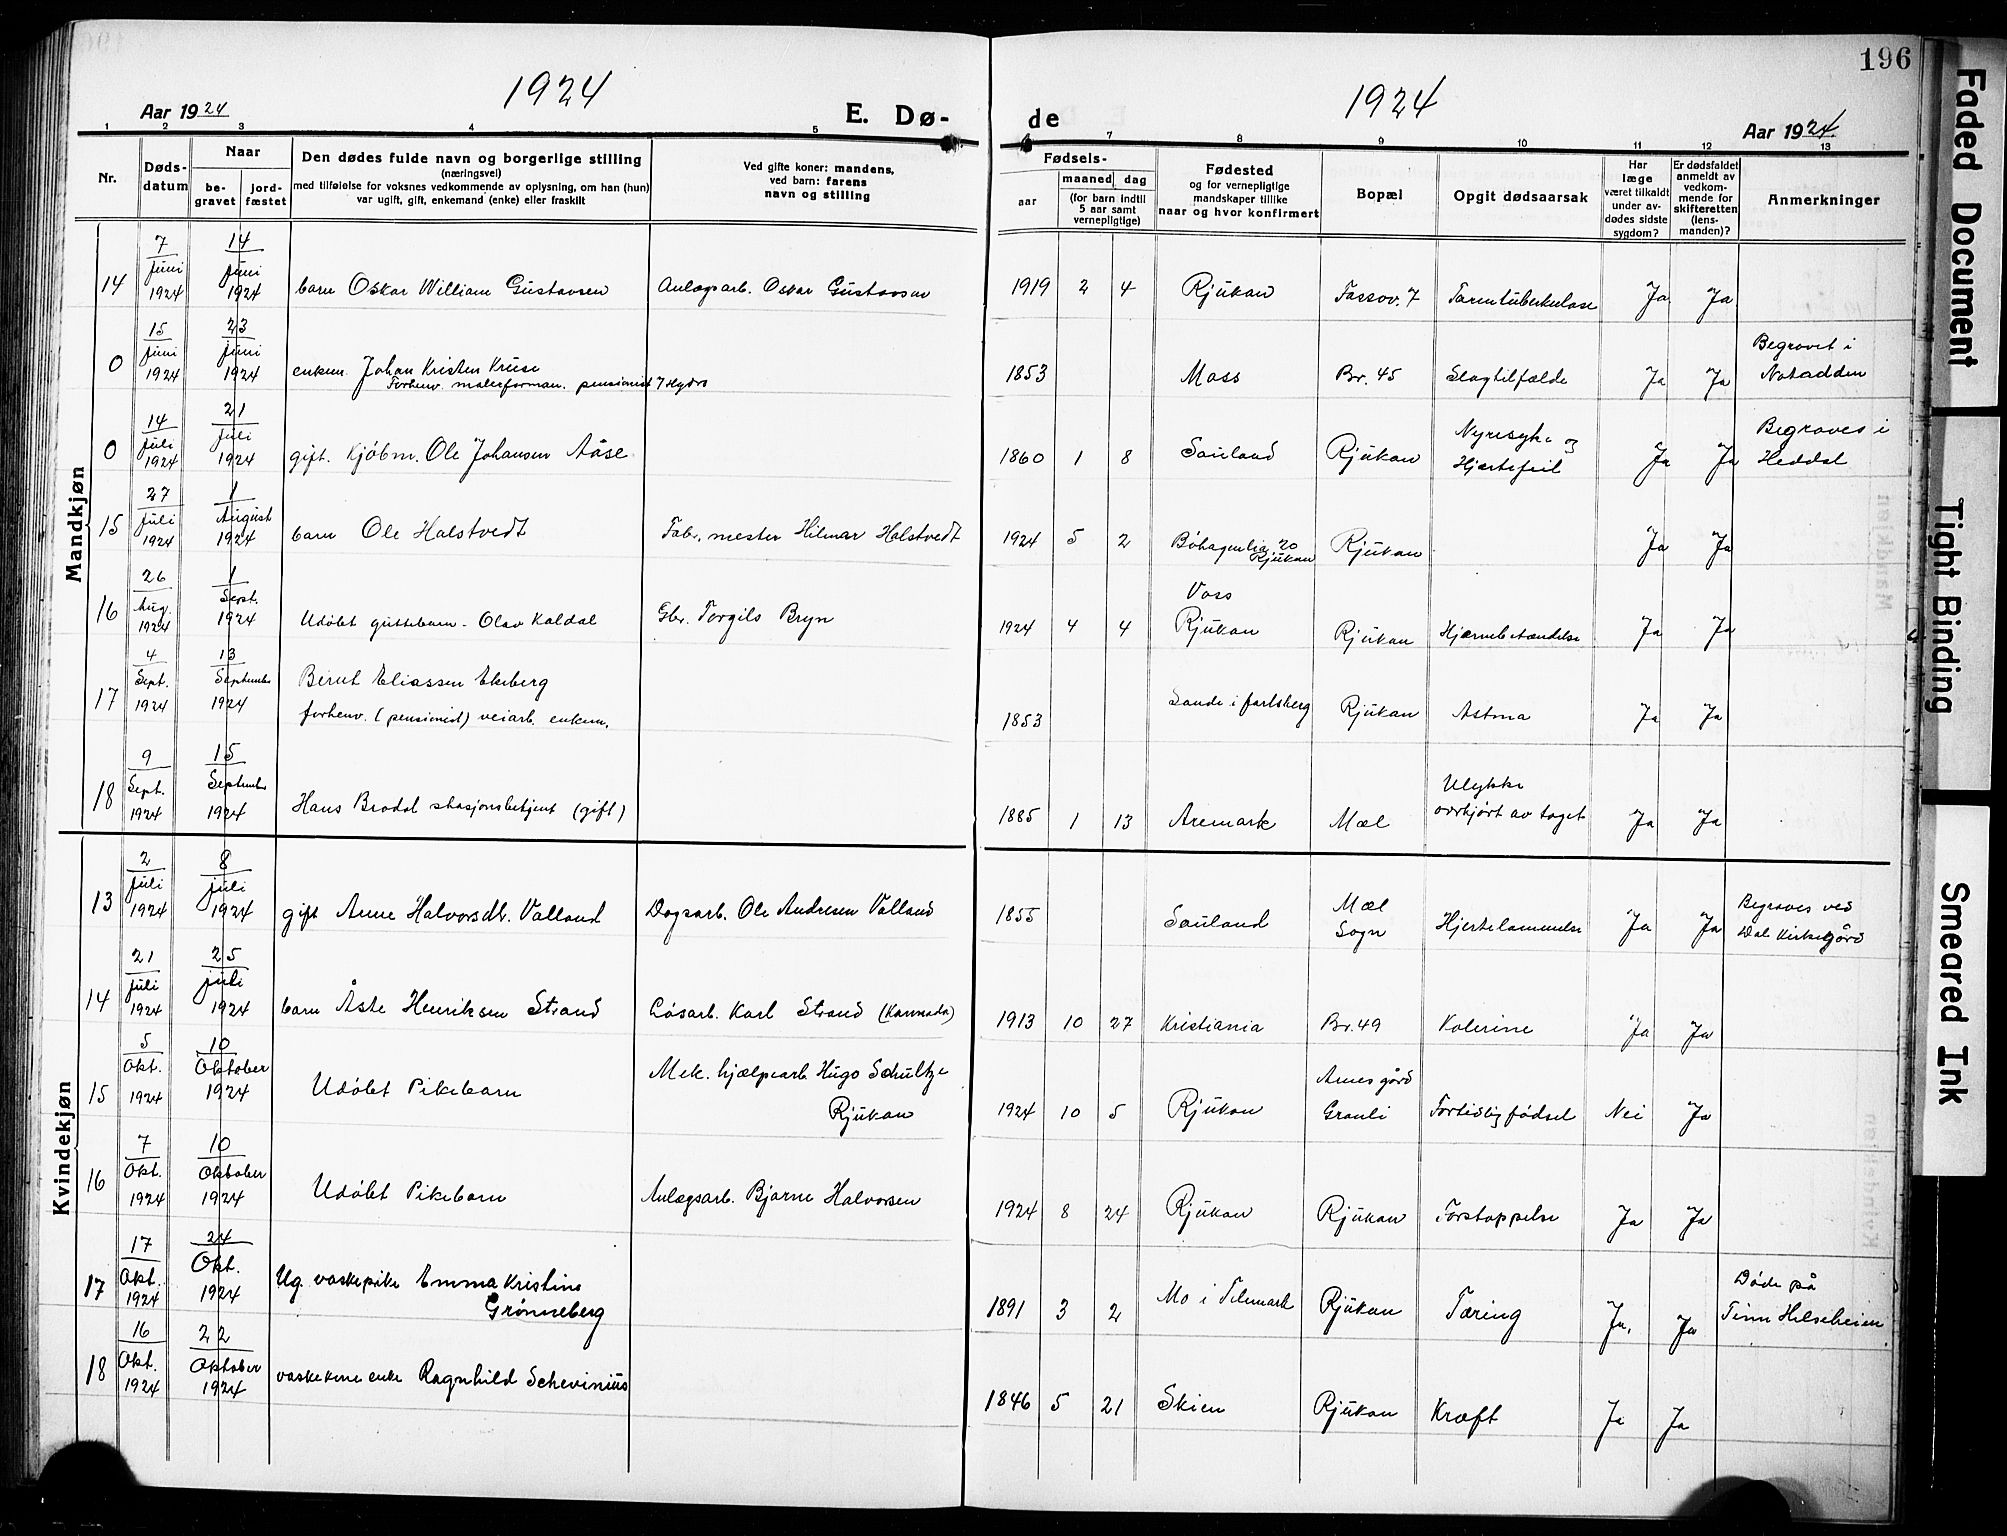 196
1924
1924
Aar 1924
E. Dø-
de
Aar 1924
1 2 3 4 5 6 7 8 9 10 11 12 13
Nr.
Døds-
datum
Naar
be-
gravet
jord-
fæstet
Den dødes fulde navn og borgerlige stilling
(næringsvei)
med tilføielse for voksnes vedkommende av oplysning, om han (hun)
var ugift, gift, enkemand (enke) eller fraskilt
Ved gifte koner: mandens,
ved barn: farens
navn og stilling
Fødsels-
aar
maaned dag
(for barn indtil
5 aar samt
vernepligtige)
Fødested
og for vernepligtige
mandskaper tillike
naar og hvor konfirmert
Bopæl
Opgit dødsaarsak
Har
læge
været tilkaldt
under av-
dødes sidste
sygdom?
Er dødsfaldet
anmeldt av
vedkom-
mende for
skifteretten
(lens-
manden)?
Anmerkninger
Mandkjøn
14 7 Juni 1924 14 Juni 1924 barn Oskar William Gustavsen Anlægsarb. Oskar Gustavsen 1919 2 4 Rjukan Tassov. 7 Tarmtuberkulose Ja Ja
0 15 Juni 1924 23 Juni 1924 enkem. Johan Kristen Kruse
Forhenv. malerforman. pensionist 7 Hydro 1853 Moss Br. 45 Slagtilfælde Ja Ja Begravet i
Notodden
0 14 Juli 1924 21 Juli 1924 gift. Kjøbm. Ole Johansen Aase 1860 1 8 Sauland Rjukan Nyresyke og
Hjertefeil Ja Ja Begraves i
Heddal
15 27 Juli 1924 1 August 1924 barn Ole Halstvedt Fabr. mester Hilmar Halstvedt 1924 5 2 Bøhagenlia 20
Rjukan Rjukan Ja Ja
16 26 Aug. 1924 1 Sept. 1924 Udøbt guttebarn - Olav Kaldal Gbr. Torgils Bryn 1924 4 4 Voss
Rjukan Rjukan Hjærnebetændelse Ja Ja
17 4 Sept. 1924 13 September 1924 Bernt Eliassen Ekeberg
forhenv. (pensionist) veiarb. enkem. 1853 Sande i Jarlsberg Rjukan Astma Ja Ja
18 9 Sept. 1924 15 September 1924 Hans Brodal stasjonsbetjent (gift) 1885 1 13 Aremark Mæl Ulykke
overkjørt av toget Ja Ja
Kvindekjøn
13 2 juli 1924 8 juli 1924 gift Anne Halvorsdt. Valland Dagsarb. Ole Andresen Valland 1855 Sauland Mæl
Sogn Hjertelammelse Ja Ja Begraves ved
Dal Kirkegård
14 21 juli 1924 25 juli 1924 barn Åste Henriksen Strand Løsarb. Karl Strand (Kannada) 1913 10 27 Kristiania Br. 49 Kolerine Ja Ja
15 5 Okt. 1924 10 Oktober 1924 Udøbt Pikebarn Mek. hjælpearb. Hugo Schultze
Rjukan 1924 10 5 Rjukan Arnesgård
Granli Fortidlig fødsel Nei Ja
16 7 Okt. 1924 10 Oktober 1924 Udøbt Pikebarn Anlægsarb. Bjarne Halvorsen 1924 8 24 Rjukan Rjukan Forstoppelse Ja Ja
17 17 Okt. 1924 24 Okt. 1924 Ug. vaskepike Emma Kristine
Grønneberg 1891 3 2 Mo i Telemark Rjukan Tæring Ja. Ja Døde på
Tinn Helseheim
18 16 Okt. 1924 22 Oktober 1924 vaskekone enke Ragnhild Schevinius 1846 5 21 Skien Rjukan Kræft Ja Ja
Faded Document
Tight Binding
Smeared Ink